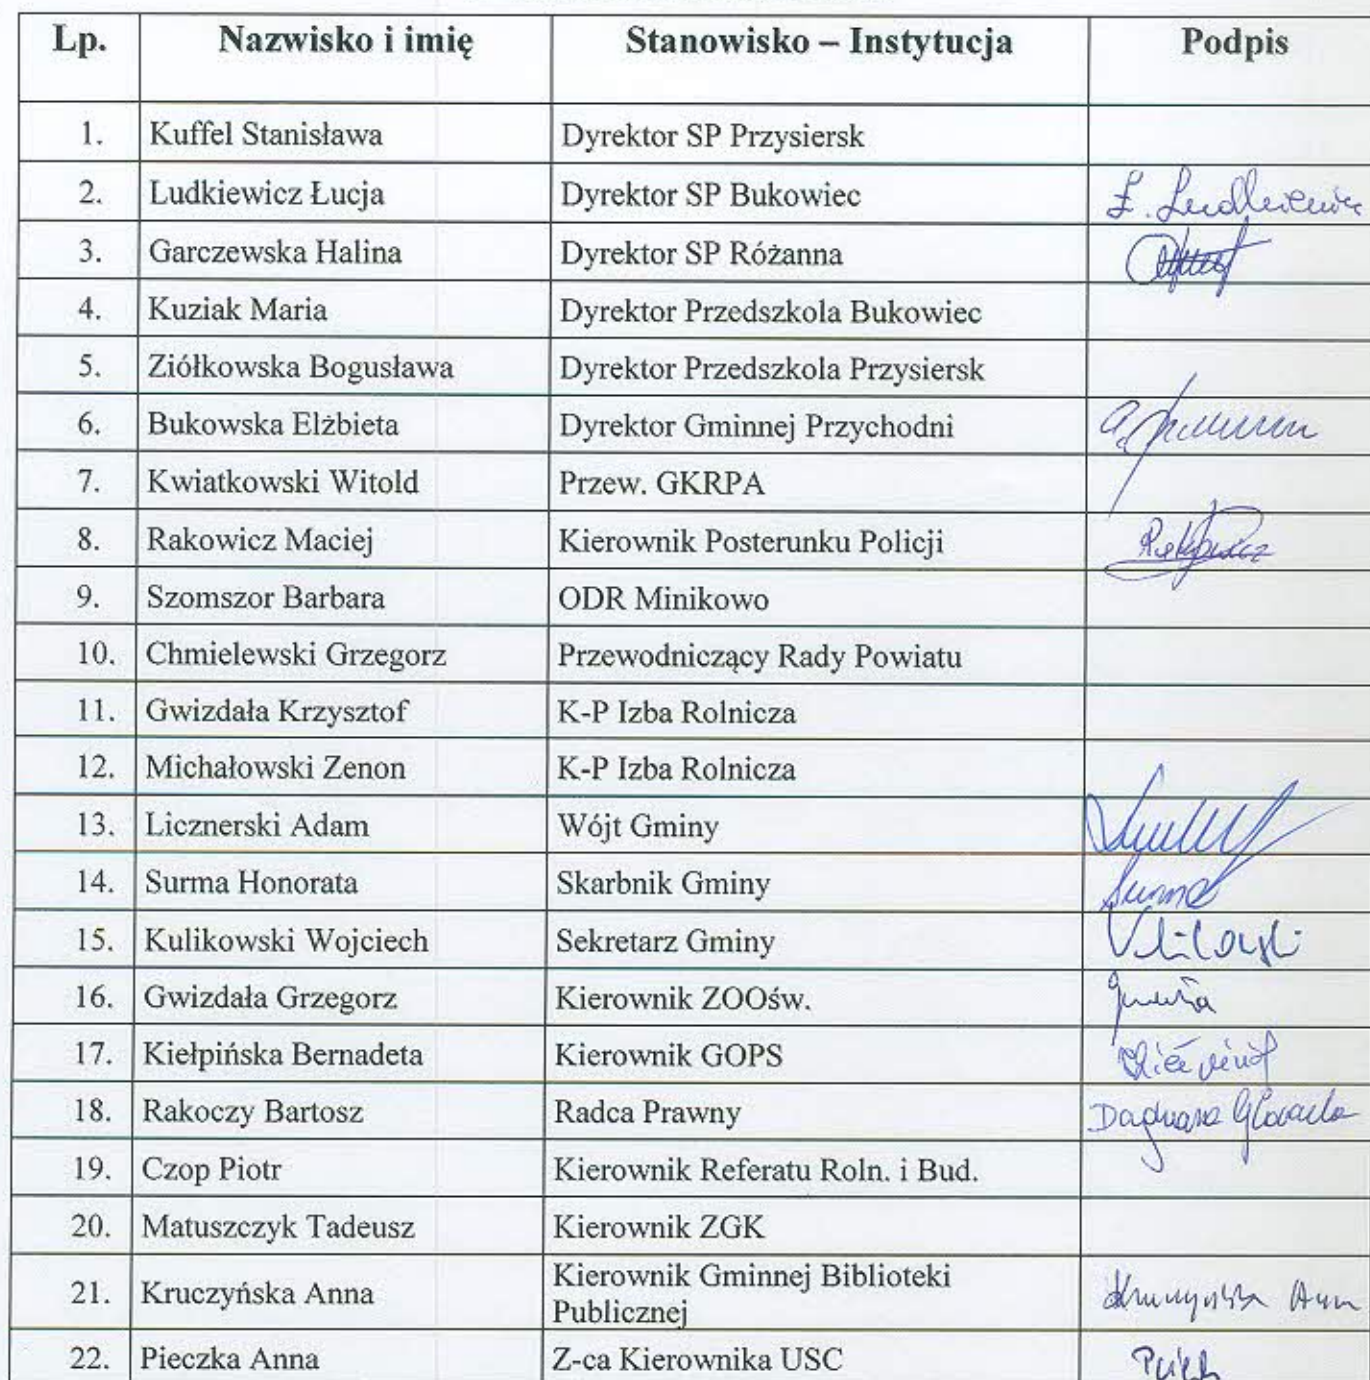 Lp. Nazwisko i imię Stanowisko – Instytucja Podpis
1. Kuffel Stanisława Dyrektor SP Przysiersk
2. Ludkiewicz Łucja Dyrektor SP Bukowiec Ł. Ludkiewicz
3. Garczewska Halina Dyrektor SP Różanna
4. Kuziak Maria Dyrektor Przedszkola Bukowiec
5. Ziółkowska Bogusława Dyrektor Przedszkola Przysiersk
6. Bukowska Elżbieta Dyrektor Gminnej Przychodni
7. Kwiatkowski Witold Przew. GKRPA
8. Rakowicz Maciej Kierownik Posterunku Policji
9. Szomszor Barbara ODR Minikowo
10. Chmielewski Grzegorz Przewodniczący Rady Powiatu
11. Gwizdała Krzysztof K-P Izba Rolnicza
12. Michałowski Zenon K-P Izba Rolnicza
13. Licznerski Adam Wójt Gminy
14. Surma Honorata Skarbnik Gminy Surma
15. Kulikowski Wojciech Sekretarz Gminy
16. Gwizdała Grzegorz Kierownik ZOOśw.
17. Kiełpińska Bernadeta Kierownik GOPS
18. Rakoczy Bartosz Radca Prawny
19. Czop Piotr Kierownik Referatu Roln. i Bud.
20. Matuszczyk Tadeusz Kierownik ZGK
21. Kruczyńska Anna Kierownik Gminnej Biblioteki
Publicznej Kruczyńska Anna
22. Pieczka Anna Z-ca Kierownika USC